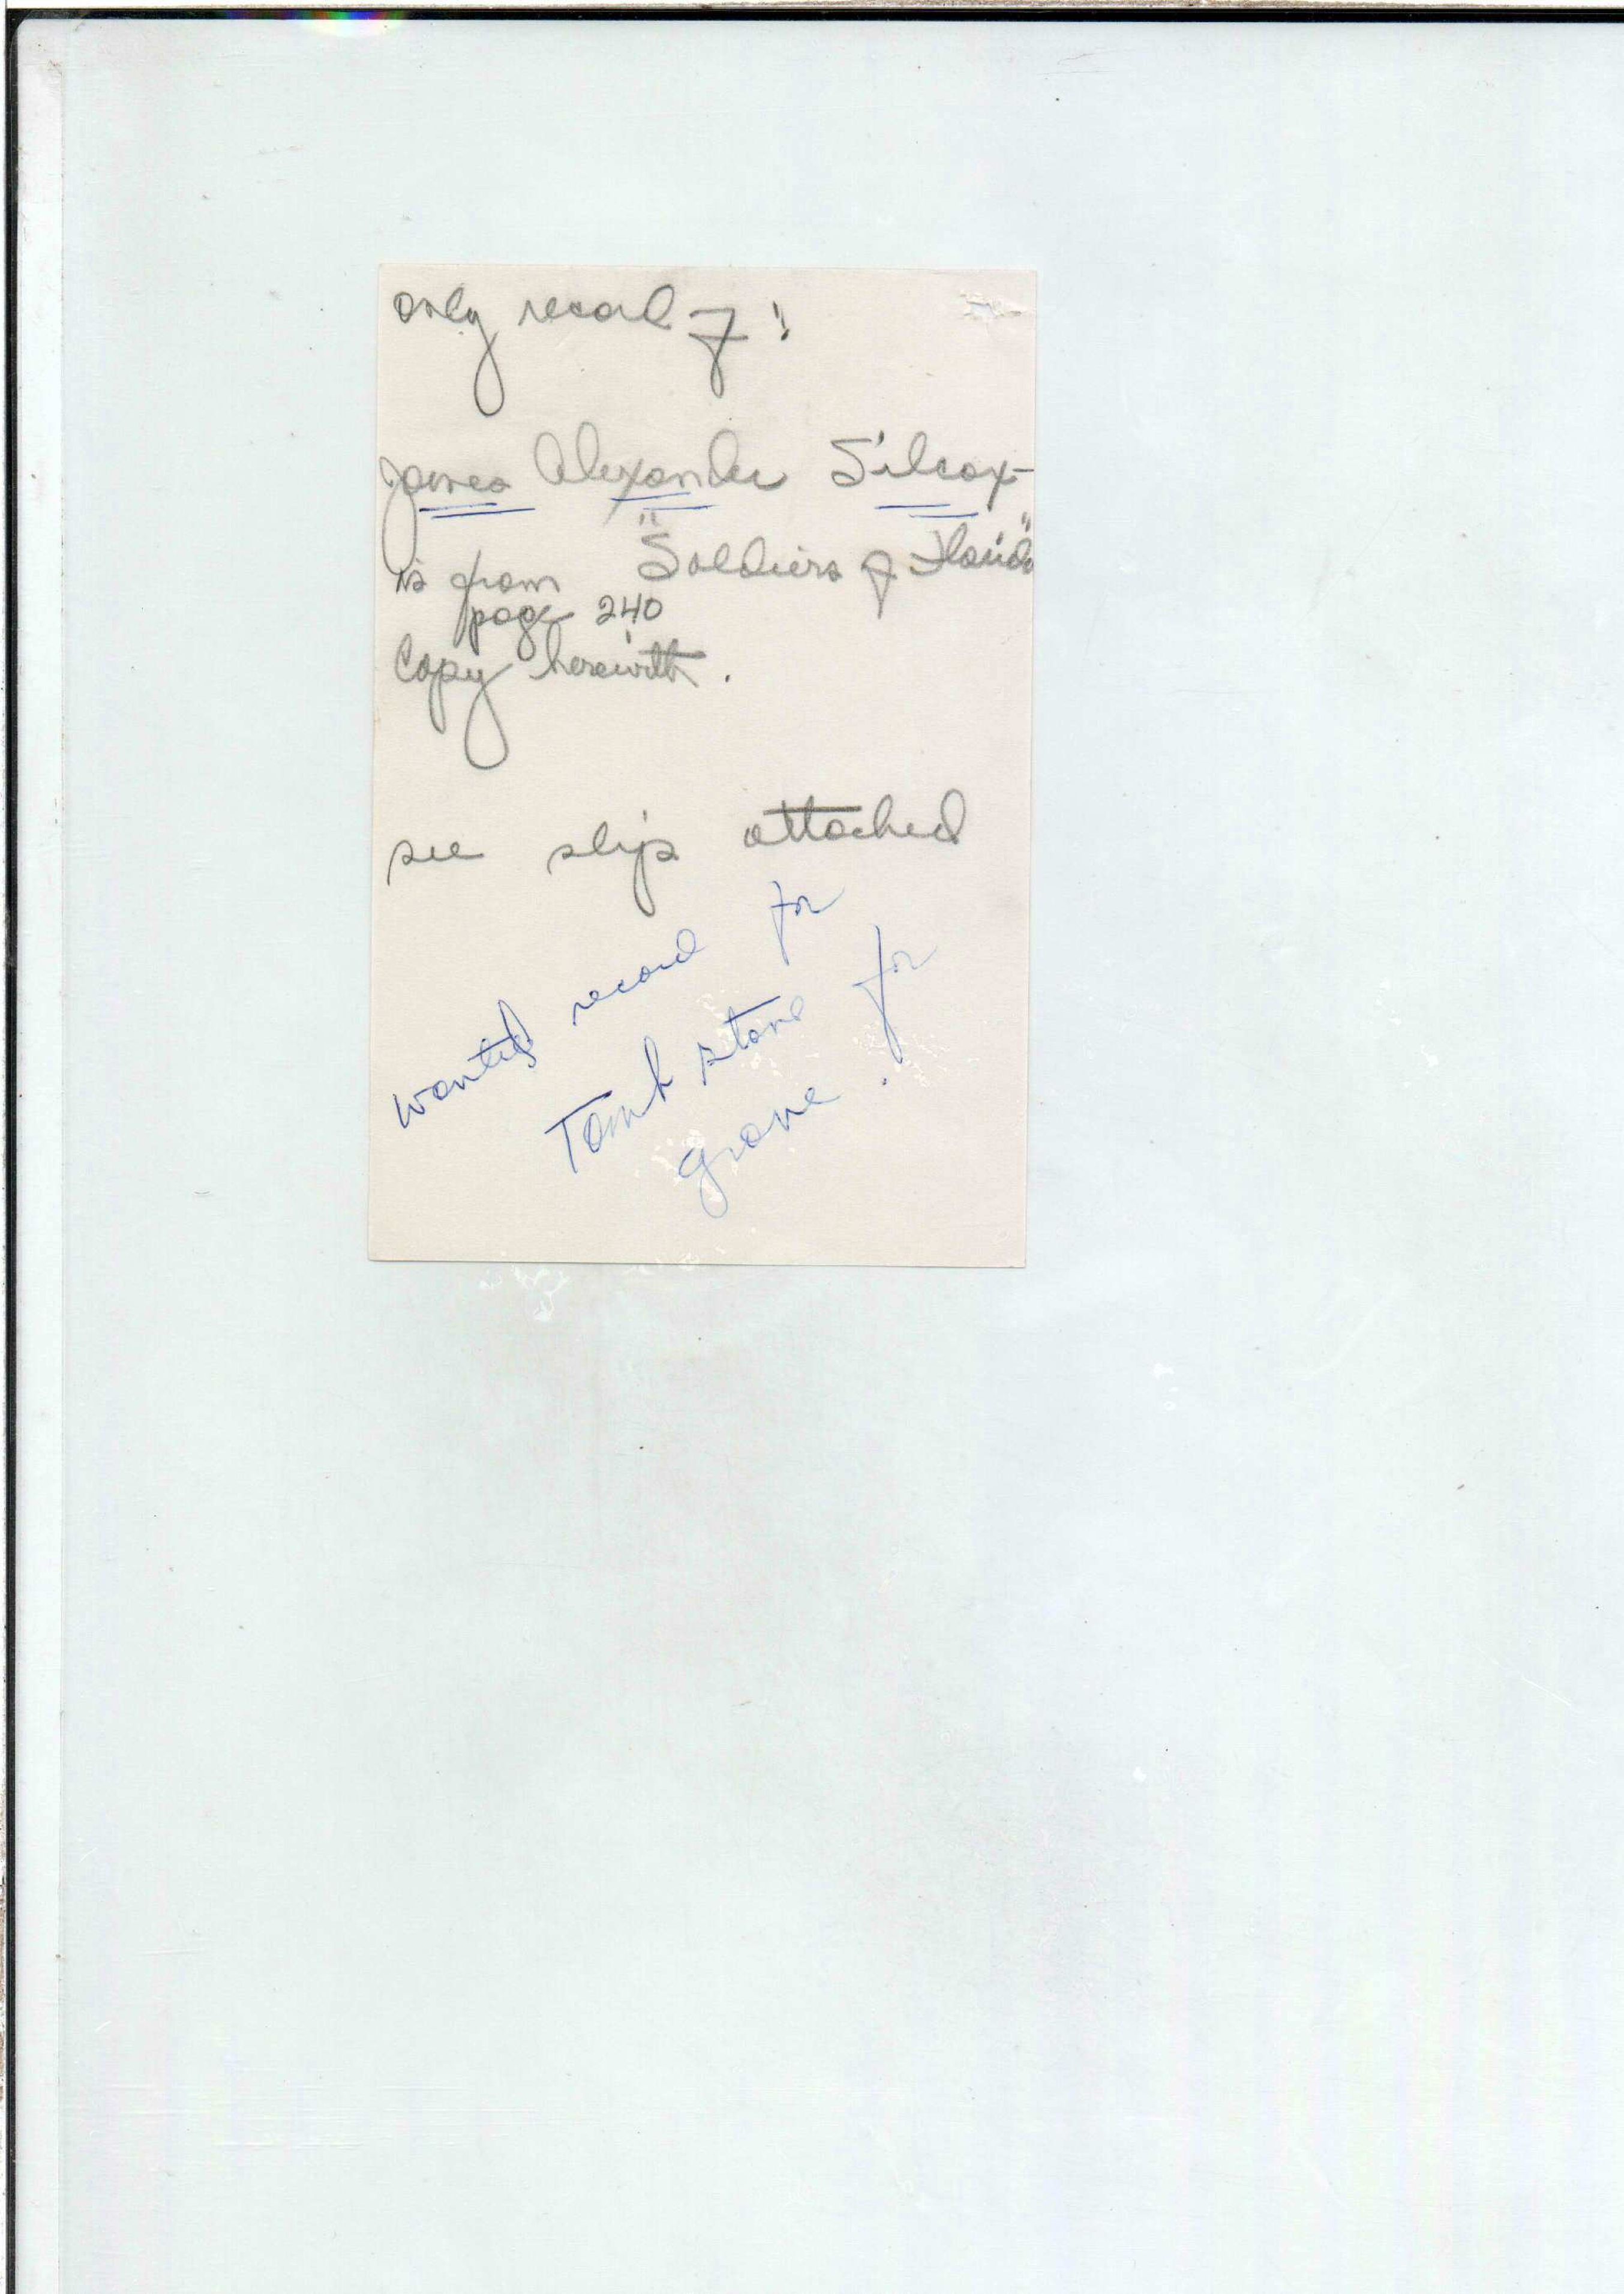 only record of :
James Alexander Silcox -
is from "Soldiers of Florida"
page 240
Copy herewith.
see slip attached
wanted record for
Tomb stone for
grave.